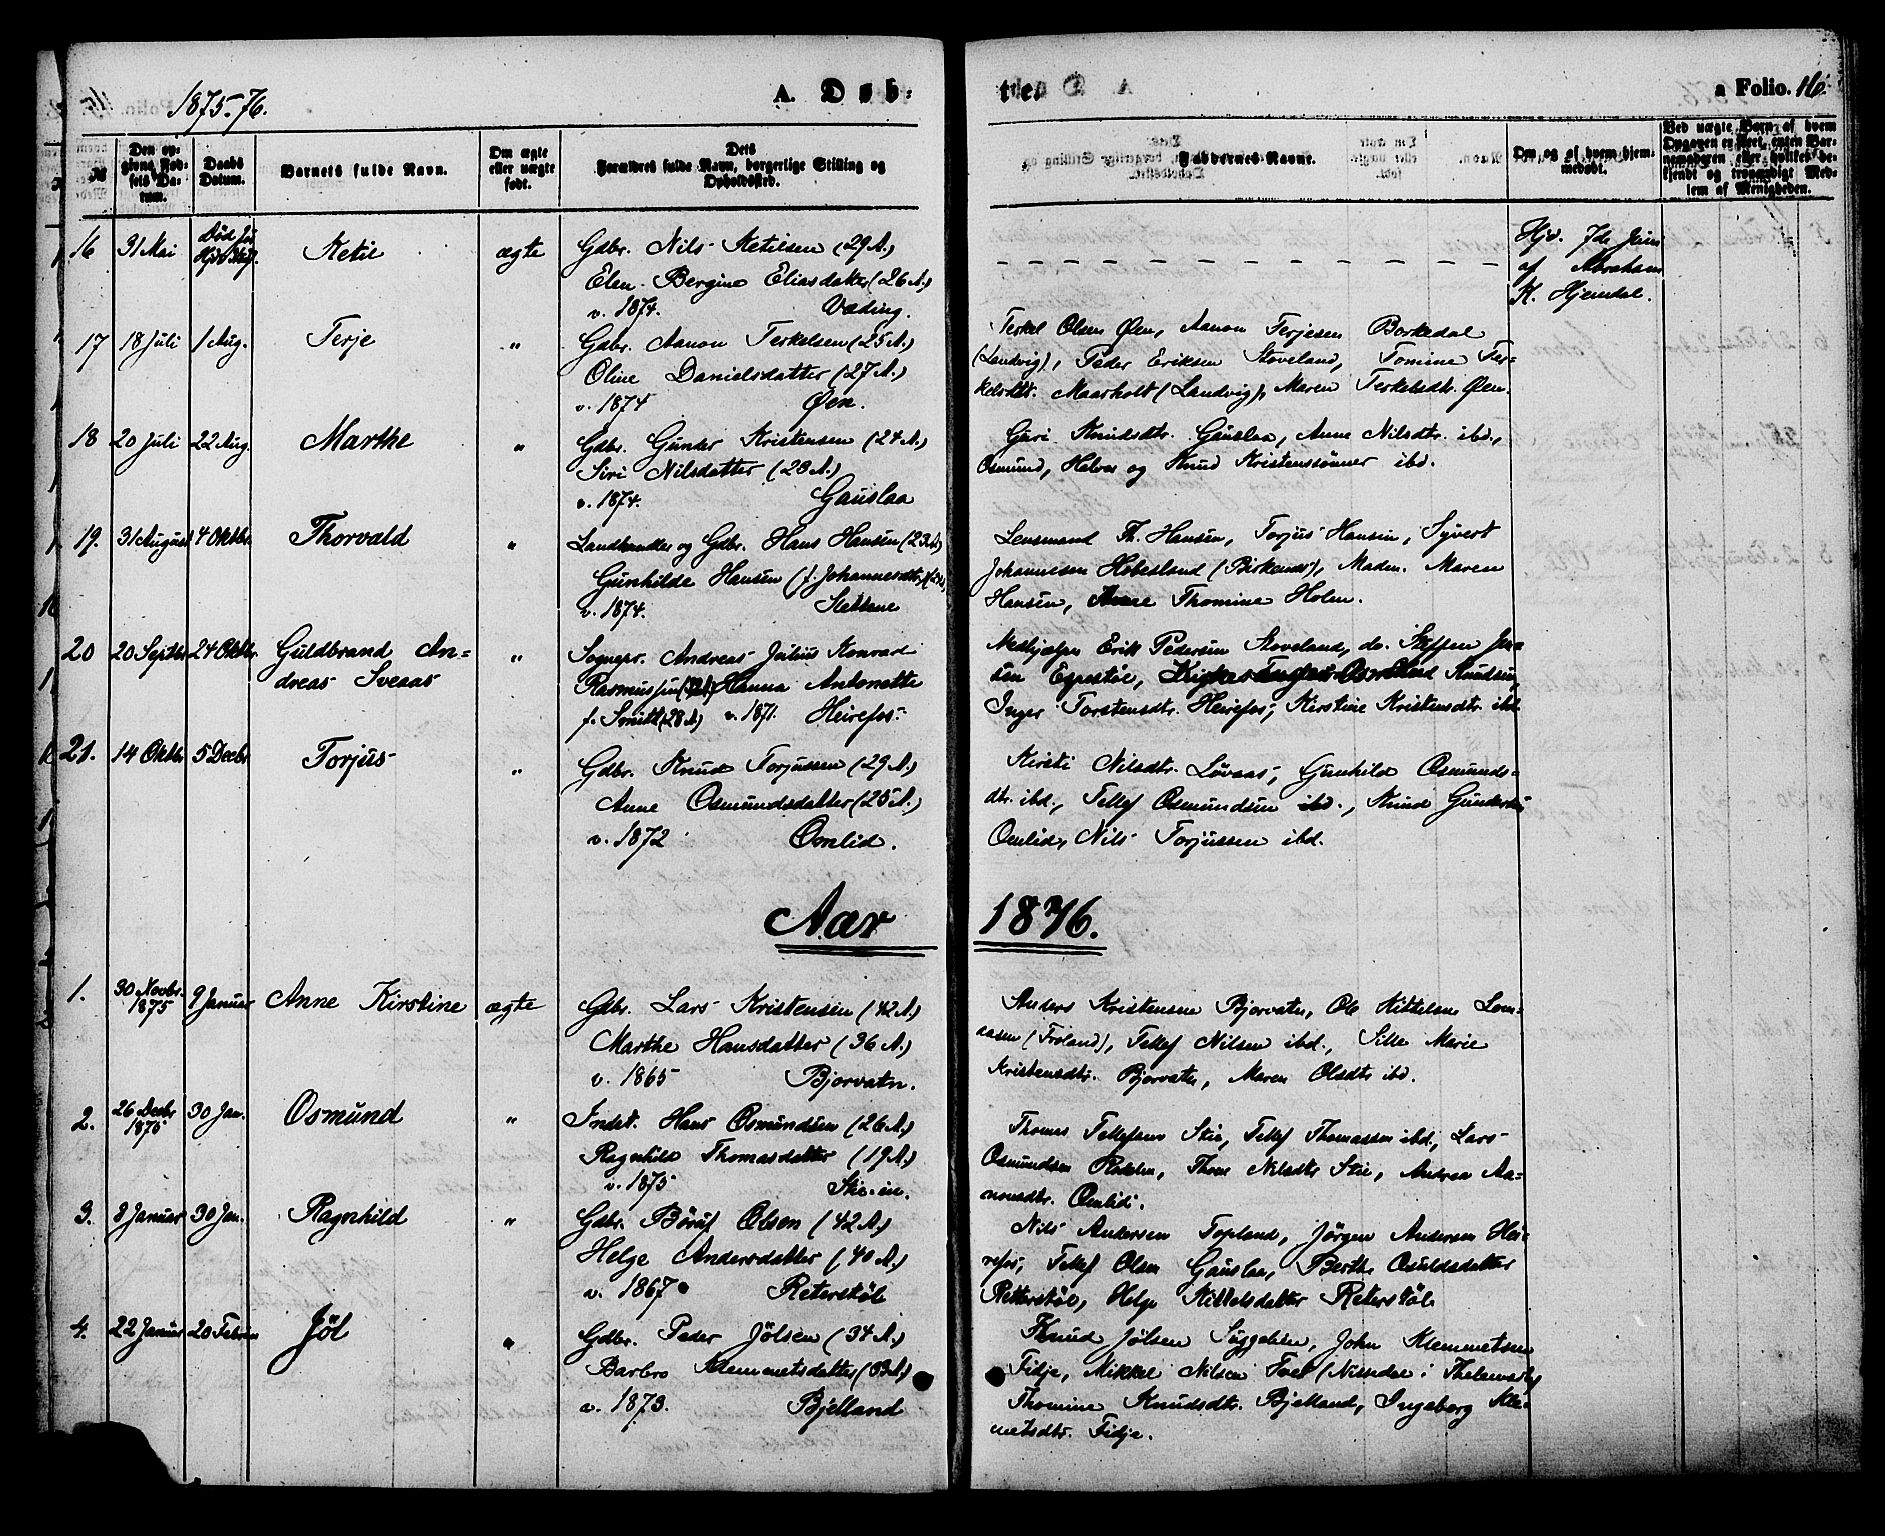 1875-76.
A. Døb-
te.
a Folio. 16.
№
Den op-
givne Fød-
sels Da-
tum.
Daabs
Datum.
Barnets fulde Navn.
Om ægte
eller uægte
født.
Dets
Forældres fulde Navn, borgerlige Stilling og
Opholdssted.
Faddernes Navne.
Om og af hvem hjem-
medøbt.
Ved uægte Børn, af hvem
Opgaven er skeet, enten Bar-
nemoderen eller hvilket be-
kjendt og troværdigt Med-
lem af Menigheden.
16 31 Mai Død
Ketil ægte Gdbr. Nils Ketilsen (29 A.)
Elen Bergine Eliasdatter (26 A.)
v. 1874. Væding.
Hjd. 7de Juni
af Abraham
K. Hjemdal.
17 18 Juli 1 Aug. Terje " Gdbr. Aanon Terkelsen (25 A.)
Oline Danielsdatter (27 A.)
v. 1874 Øen.
Terkel Olsen Øen, Aanon Terjesen Borkedal
(Landvig), Peder Eriksen Stoveland, Tomine Ter-
kelsdtr. Maarholt (Landvig), Maren Terkelsdtr. Øen.
18 20 Juli 22 Aug. Marthe " Gdbr. Gunder Kristensen (24 A.)
Siri Nilsdatter (28 A.)
v. 1874. Gauslaa
Guri Knudsdtr. Gauslaa, Anne Nilsdtr. ibd.,
Osmund, Helvor og Knud Kristenssønner ibd.
19. 31 August 4 Oktbr. Thorvald " Landhandler og Gdbr. Hans Hansen (23 A.)
Gunhilde Hansen (f. Johannesdtr.)
v. 1874.
Lensmand Th. Hansen, Torjus Hansen, Syvert
Johannesen Hobesland (Birkenes), Madm. Maren
Hansen, Anne Thomine Holen.
20 20 Septbr 24 Oktbr. Guldbrand An-
dreas Sveaas " Sognepr. Andreas Julius Konrad
Rasmussen Hanna Antonette
f. Smitt (28 A) v. 1871. Heirefos.
Medhjælper Erik Pedersen Stoveland, do. Steffen Jen-
sen Egestøl, Kirkesanger Osmund Knudsen,
Inger Torstensdtr. Heirefos, Kirstine Kristensdtr. ibd.
21. 14 Oktbr 5 Decbr Torjus " Gdbr. Knud Torjussen (29 A.)
Anne Osmundsdatter (25 A.)
v. 1872 Omlid.
Kirsti Nilsdtr. Løvaas, Gunhild Osmunds-
dtr. ibd., Tellef Osmundsen ibd., Knud Gundersen
Omlid, Nils Torjussen ibd.
Aar 1876.
1. 30 Novbr. 1875 9 Januar Anne Kirstine ægte Gdbr. Lars Kristensen (42 A.)
Marthe Hansdatter (36 A.)
v. 1865 Bjorvatn.
Anders Kristensen Bjorvatn, Ole Kittelsen Lom-
aasen (Froland), Tellef Nilsen ibd., Sille Marie
Kristensdtr. Bjorvatn, Maren Olsdtr ibd.
2. 26 Decbr 1875 30 Jan. Osmund " Indst. Hans Osmundsen (26 A.)
Ragnhild Thomasdatter (19 A.)
v. 1875
Thomas Tellefsen Skie, Tellef Thomassen ibd., Lars
Osmundsen Thone Nilsdtr Skie, Andrea Aa-
nonsdtr. Omlid.
3. 8 Januar 30 Jan. Ragnhild " Gdbr. Børuf Olsen (42 A.)
Helge Andersdatter (40 A.)
v. 1867 Reterstøl
Nils Andersen Topland, Jørgen Andersen Hei-
refos, Tellef Olsen Gauslaa, Berthe Osuldsdatter
Retterstøl, Helge Kittelsdatter Reterstøl.
4. 22 Januar 20 Februar Jøl " Gdbr. Peder Jølsen (34 A.)
Barbro Klemmetsdatter (33 A.)
v. 1873. Bjelland
Knud Jølsen John Klemmetsen
Fidje, Mikkel Nilsen Tvet (Nissedal i Thelemarken)
Thomine Knudsdtr. Bjelland, Ingeborg Kle-
metsdtr. Fidje.